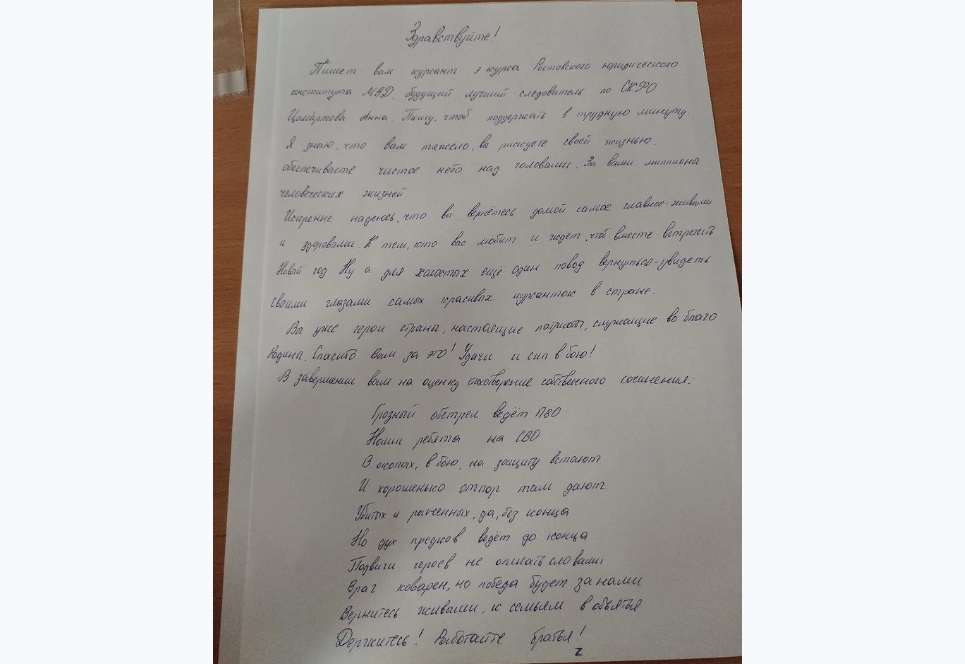 Здравствуйте!
Пишет вам курсант 3 курса Ростовского юридического
института МВД, будущий лучший следователь по СКФО
Анна. Пишу, чтоб поддержать в трудную минуту.
Я знаю, что вам тяжело, вы рискуете своей жизнью,
обеспечиваете чистое небо над головами. За вами миллионы
человеческих жизней
Искренне надеюсь, что вы вернётесь домой самое главное-живыми
и здоровыми. К тем, кто вас любит и ждет, чтоб вместе встретить
Новый год Ну а для холостых ещё один повод вернуться-увидеть
своими глазами самых красивых курсанток в стране.
Вы уже герои страны, настоящие патриоты, служащие во благо
Родины. Спасибо Вам за это! Удачи и сил в бою!
В завершении вам на оценку стихотворение собственного сочинения:
Грозный обстрел ведёт ПВО
Наши ребята на СВО
В окопах, в бою, на защиту встают
И хорошенько отпор там дают
Убитых и раненных, да, без конца
Но дух предков ведёт до конца
Подвиги героев не описать словами
Враг коварен, но победа будет за нами
Вернитесь живыми, к семьям в объятья
Держитесь! Работайте братья!
Z